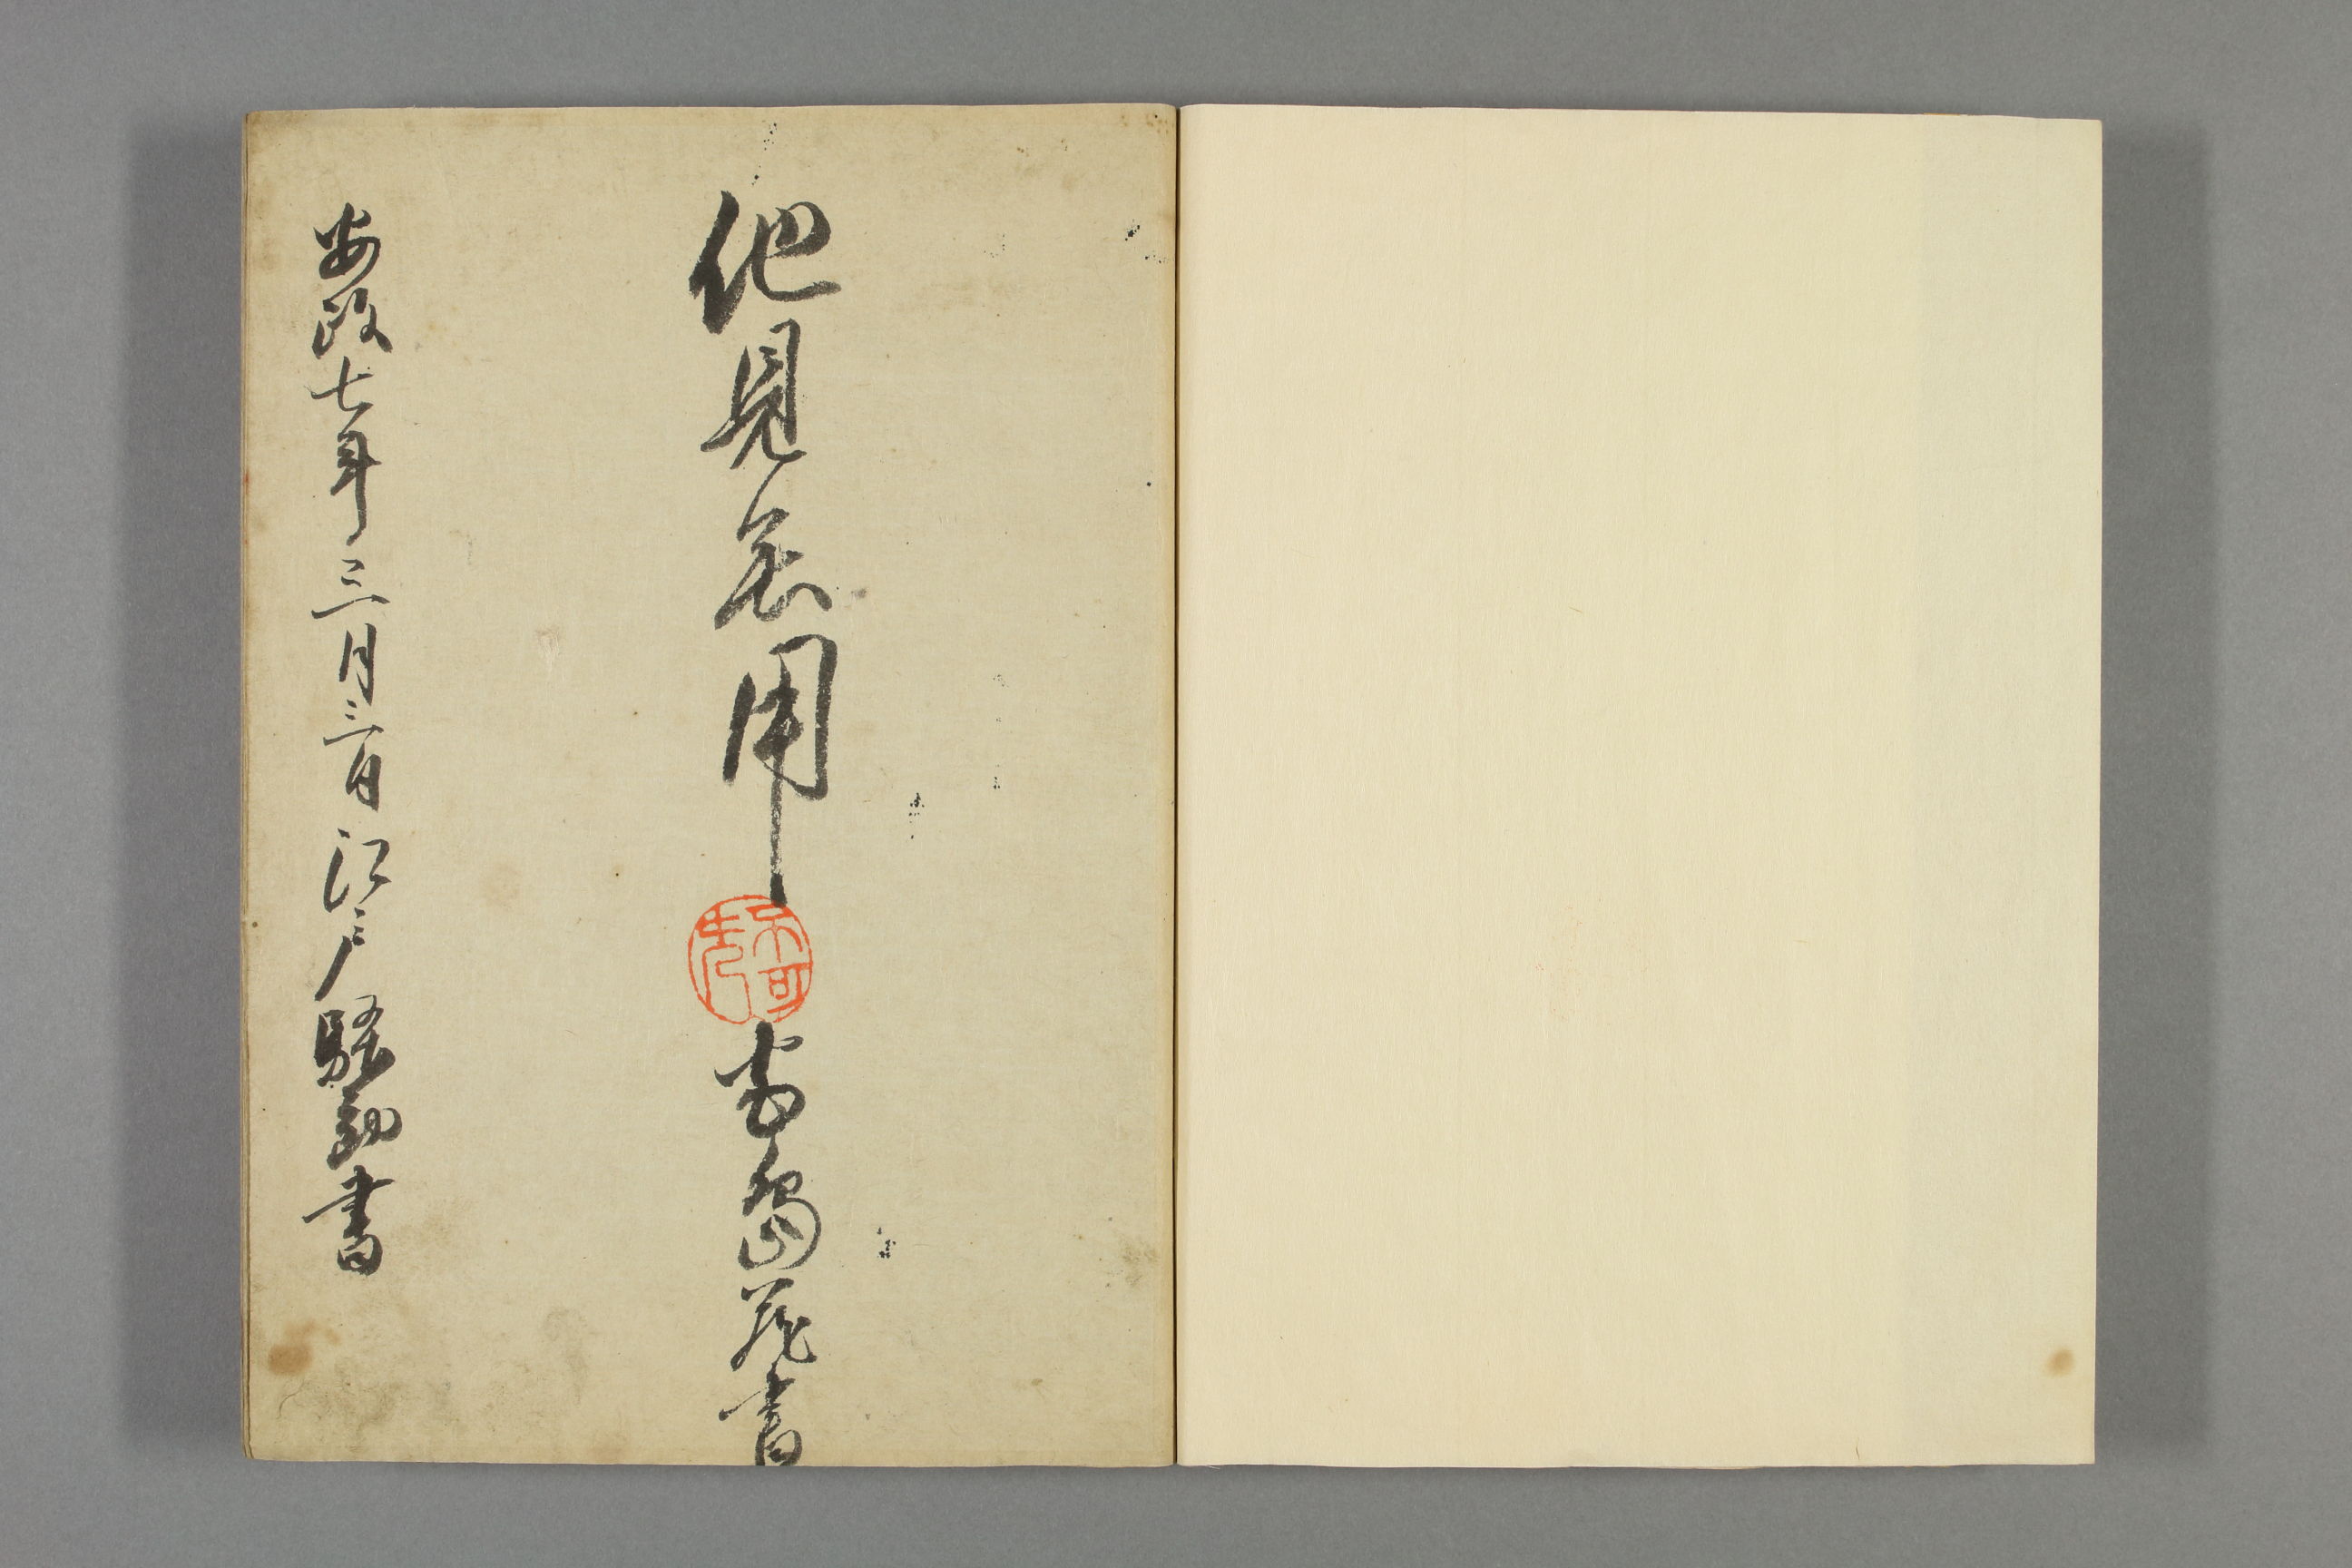 他見無用
島蔵書
安政七年三月三日江戸騒動書